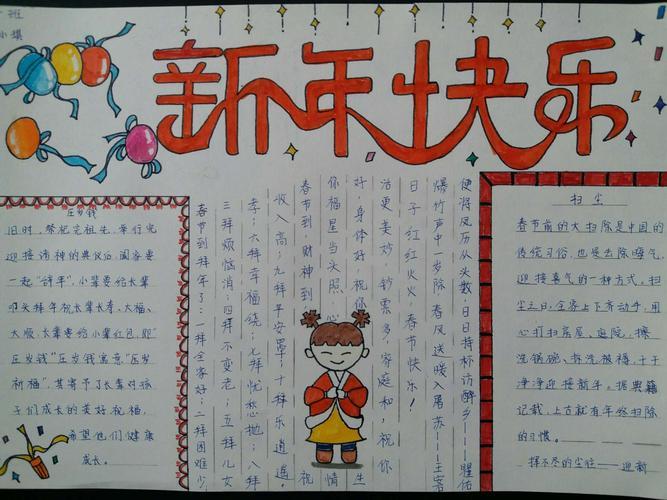 班
小棋
新年快乐
压岁钱
旧时，祭祀完祖先，举行完
迎接诸神的典仪后，阖家要
一起“辞年”，小辈要给长辈
叩头拜年祝长辈长寿、大福、
大顺，长辈要给小辈红包，即“
压岁钱”压岁钱寓意“压岁
祈福”，其寄予了长辈对孩
子们成长的美好祝福，
希望他们健康
成长。
春节到拜年了：一拜全家好；二拜困难少
三拜烦恼消；四拜不变老；五拜儿女
孝；六拜幸福绕；七拜忧愁抛；八拜
收入高；九拜平安罩；十拜乐逍遥。
春节到，财神到，祝
你福星当头照，心情
好，身体好，祝你生
活更美妙，钞票多，家庭和，祝你
日子红红火火，春节快乐！
爆竹声中一岁除 春风送暖入屠苏——王客
便将凤历从头数，日日持杯访醉乡——瞿佑
扫尘
春节前的大扫除是中国的
传统习俗，也是去除晦气，
迎接喜气的一种方式。扫
尘之日，全家上下齐动手，用
心打扫房屋、庭院，擦
洗锅碗、拆洗被褥，干干
净净迎接新年。据典籍
记载，上古就有年终扫除
的习惯。
挥不尽的尘往——迎新